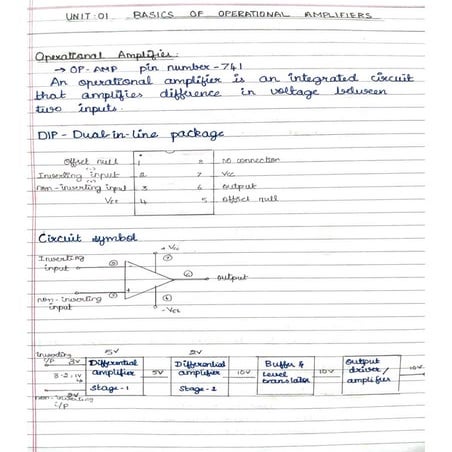 UNIT:01 BASICS OF OPERATIONAL AMPLIFIERS
Operational Amplifier:
→ OP-AMP pin number-741
An operational amplifier is an integrated circuit
that amplifies difference in voltage between
two inputs.
DIP - Dual-in-line package
Offset null 1 8 no connection
Inverting input 2 7 Vcc
non-inverting input 3 6 output
VEE 4 5 offset null
Circuit symbol
+Vcc
Inverting
input
- 
+
output
non-inverting
input
-VEE
5V 2V
Inverting
i/p 3V Differential 5V Differential 10V Buffer & 10V Output 10V
amplifier amplifier level driver/
stage-1 stage-2 translator amplifier
2V
non-inverting
i/p